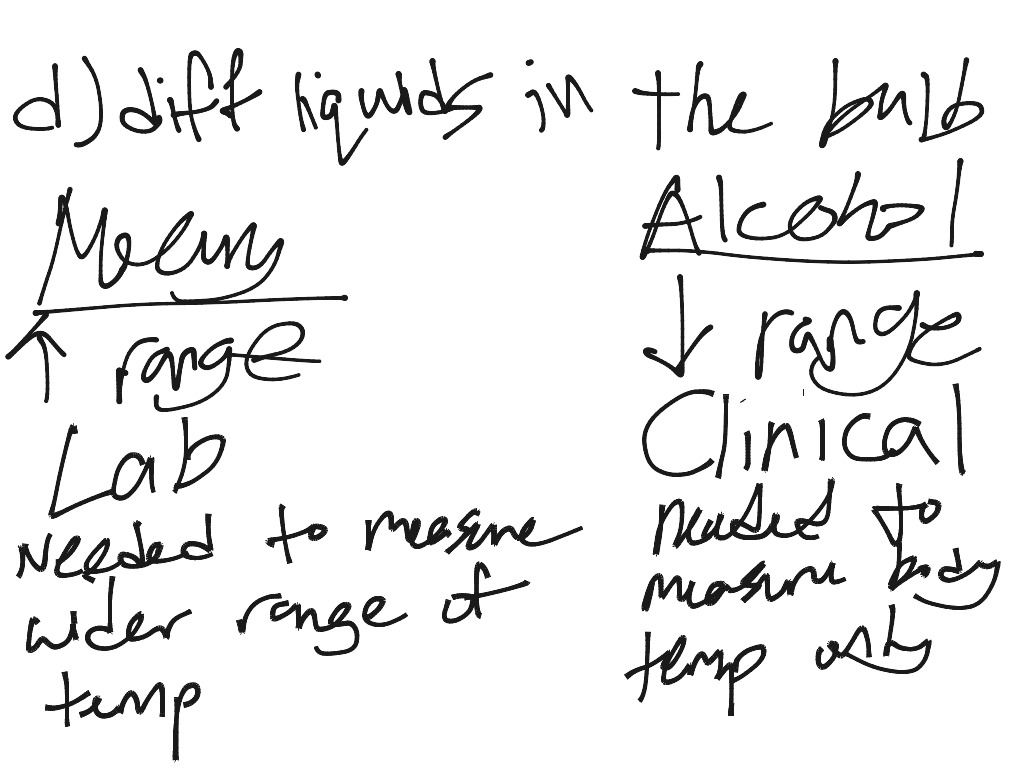 d) diff liquids in the bulb
Mercury
↑ range
Lab
Needed to measure
wider range of
temp
Alcohol
↓ range
Clinical
needed to
measure body
temp only